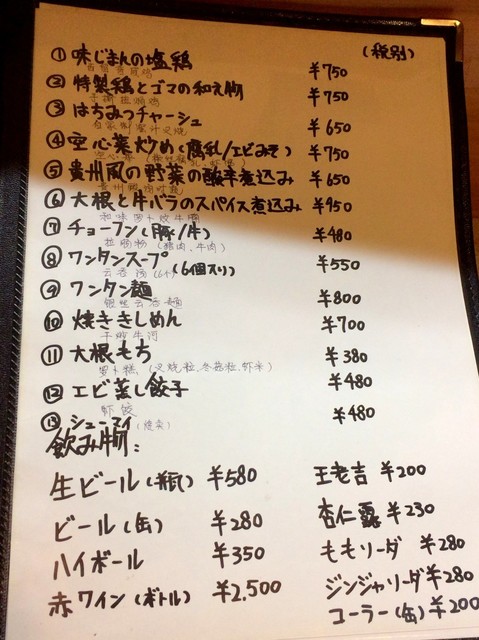 (税別)
① 味じまんの塩鶏 ¥750
② 特製鶏とゴマの和え物 ¥750
③ はちみつチャーシュー ¥650
自家制蜜汁叉烧
④ 空心菜炒め(腐乳/エビみそ) ¥750
⑤ 貴州風の野菜の酸辛煮込み ¥650
⑥ 大根と牛バラのスパイス煮込み ¥950
⑦ チョーフン(豚/牛) ¥480
拉肠粉(猪肉、牛肉)
⑧ ワンタンスープ(6個入り) ¥550
云吞汤(6个)
⑨ ワンタン麺 ¥800
银丝云吞麺
⑩ 焼ききしめん ¥700
干炒牛河
⑪ 大根もち ¥380
萝卜糕(叉烧粒、冬菇粒、虾米)
⑫ エビ蒸し餃子 ¥480
虾饺
⑬ シューマイ(烧卖) ¥480
飲み物:
生ビール(瓶) ¥580
ビール(缶) ¥280
ハイボール ¥350
赤ワイン(ボトル) ¥2,500
王老吉 ¥200
杏仁露 ¥230
ももソーダ ¥280
ジンジャソーダ ¥280
コーラー(缶) ¥200